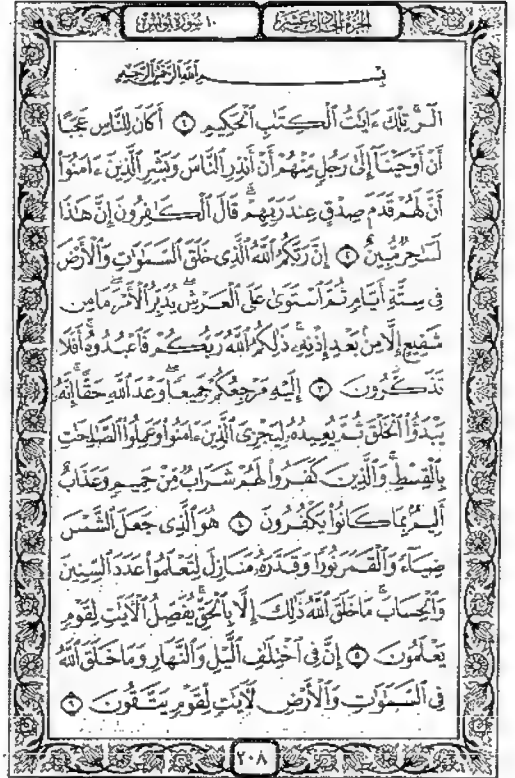 الجزء الحادي عشر
١٠ سورة يونس
بِسْمِ اللَّهِ الرَّحْمَٰنِ الرَّحِيمِ
الٓر ۚ تِلْكَ ءَايَٰتُ ٱلْكِتَٰبِ ٱلْحَكِيمِ ١ أَكَانَ لِلنَّاسِ عَجَبًا
أَنْ أَوْحَيْنَآ إِلَىٰ رَجُلٍ مِّنْهُمْ أَنْ أَنذِرِ ٱلنَّاسَ وَبَشِّرِ ٱلَّذِينَ ءَامَنُوٓا۟
أَنَّ لَهُمْ قَدَمَ صِدْقٍ عِندَ رَبِّهِمْ ۗ قَالَ ٱلْكَٰفِرُونَ إِنَّ هَٰذَا
لَسَٰحِرٌ مُّبِينٌ ٢ إِنَّ رَبَّكُمُ ٱللَّهُ ٱلَّذِى خَلَقَ ٱلسَّمَٰوَٰتِ وَٱلْأَرْضَ
فِى سِتَّةِ أَيَّامٍ ثُمَّ ٱسْتَوَىٰ عَلَى ٱلْعَرْشِ ۖ يُدَبِّرُ ٱلْأَمْرَ ۖ مَا مِن
شَفِيعٍ إِلَّا مِنۢ بَعْدِ إِذْنِهِۦ ۚ ذَٰلِكُمُ ٱللَّهُ رَبُّكُمْ فَٱعْبُدُوهُ ۚ أَفَلَا
تَذَكَّرُونَ ٣ إِلَيْهِ مَرْجِعُكُمْ جَمِيعًا ۖ وَعْدَ ٱللَّهِ حَقًّا ۚ إِنَّهُۥ
يَبْدَؤُا۟ ٱلْخَلْقَ ثُمَّ يُعِيدُهُۥ لِيَجْزِىَ ٱلَّذِينَ ءَامَنُوا۟ وَعَمِلُوا۟ ٱلصَّٰلِحَٰتِ
بِٱلْقِسْطِ ۚ وَٱلَّذِينَ كَفَرُوا۟ لَهُمْ شَرَابٌ مِّنْ حَمِيمٍ وَعَذَابٌ
أَلِيمٌۢ بِمَا كَانُوا۟ يَكْفُرُونَ ٤ هُوَ ٱلَّذِى جَعَلَ ٱلشَّمْسَ
ضِيَآءً وَٱلْقَمَرَ نُورًا وَقَدَّرَهُۥ مَنَازِلَ لِتَعْلَمُوا۟ عَدَدَ ٱلسِّنِينَ
وَٱلْحِسَابَ ۚ مَا خَلَقَ ٱللَّهُ ذَٰلِكَ إِلَّا بِٱلْحَقِّ ۚ يُفَصِّلُ ٱلْءَايَٰتِ لِقَوْمٍ
يَعْلَمُونَ ٥ إِنَّ فِى ٱخْتِلَٰفِ ٱلَّيْلِ وَٱلنَّهَارِ وَمَا خَلَقَ ٱللَّهُ
فِى ٱلسَّمَٰوَٰتِ وَٱلْأَرْضِ لَءَايَٰتٍ لِّقَوْمٍ يَتَّقُونَ ٦
٢٠٨